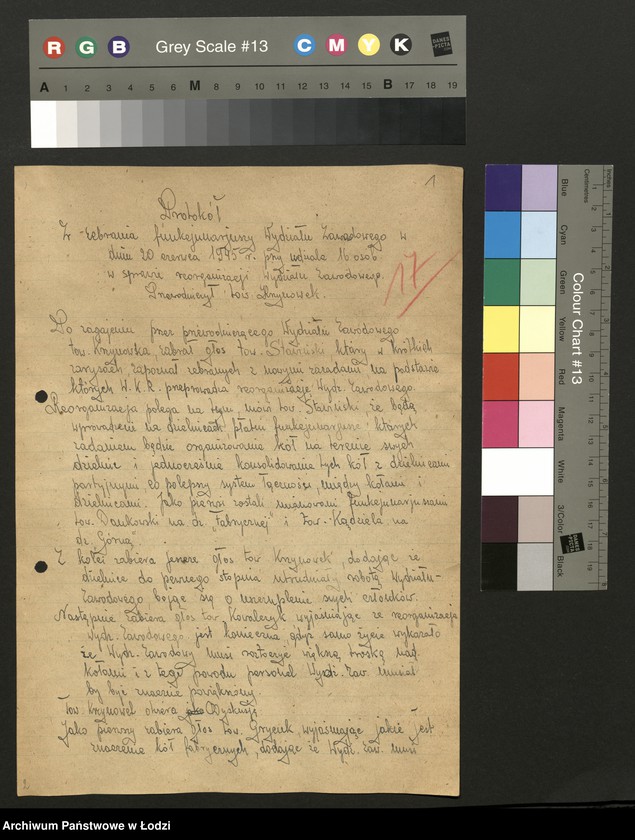 R G B Grey Scale #13 C M Y K DANES-PICTA .COM
A 1 2 3 4 5 6 M 8 9 10 11 12 13 14 15 B 17 18 19
1
Protokół
Z zebrania funkcjonarjuszy Wydziału Zawodowego w
dniu 20 czerwca 1945 r. przy udziale 16 osób
w sprawie reorganizacji Wydziału Zawodowego.
Przewodniczył tow. Krzynowek.
17
Po zagajeniu przez przewodniczącego Wydziału Zawodowego
tow. Krzynowka, zabrał głos tow. Stasiński, który w krótkich
zarysach zapoznał zebranych z nowymi zasadami na podstawie
których W.K.R. przeprowadza reorganizację Wydz. Zawodowego.
Reorganizacja polega na tym, mówi tow. Stasiński, że będą
wprowadzeni na dzielnicach płatni funkcjonarjusze których
zadaniem będzie organizowanie kół na terenie swych
dzielnic i jednocześnie konsolidowanie tych kół z dzielnicami
partyjnymi, co polepszy system łączności, między kołami i
dzielnicami. Jako pierwsi zostali mianowani funkcjonarjuszami
tow. Dankowski na dz. "Fabrycznej" i tow. Kądziela na
dz. "Górną".
Z kolei zabiera jeszcze głos tow Krzynowek, dodając że
dzielnice do pewnego stopnia utrudniały robotę Wydziału-
Zawodowego bojąc się o uszczuplenie swych członków.
Następnie zabiera głos tow. Kowalczyk wyjaśniając że reorganizacja
Wydz. Zawodowego jest konieczna, gdyż samo życie wykazało
że Wydz. Zawodowy musi roztoczyć większą troskę nad
kołami i z tego powodu personel Wydz. Zaw. musiał
by być znacznie powiększony.
Tow. Krzynowek otwiera Dyskusję
Jako pierwszy zabiera głos tow. Grycuk, wyjaśniając jakie jest
znaczenie kół fabrycznych, dodając że Wydz. Zaw. musi
Colour Chart #13
Blue
Cyan
Green
Yellow
Red
Magenta
White
3/Color
Black
Centimetres
Inches
DANES-PICTA .COM
Archiwum Państwowe w Łodzi